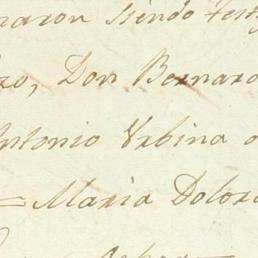 maron siendo test
zo, Don Bernard
Antonio Urbina o
= Maria Dolor